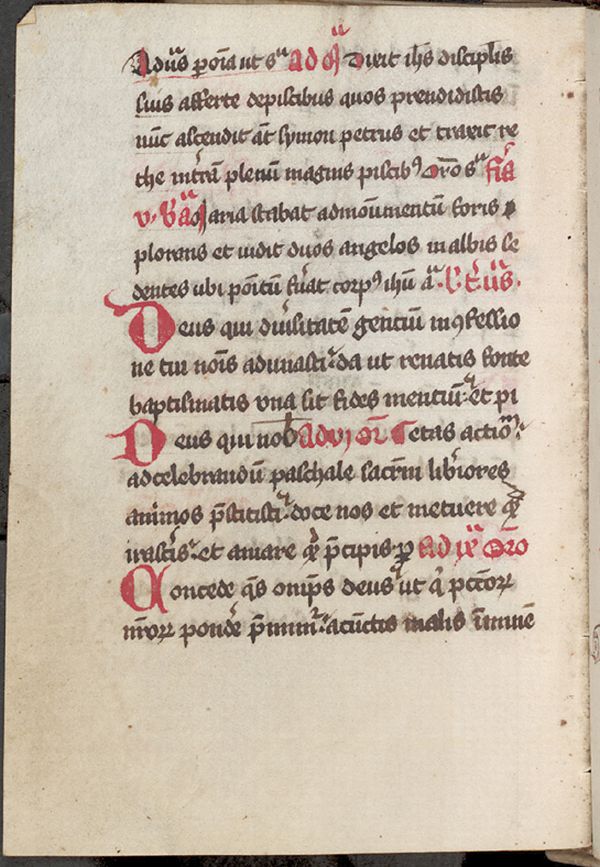 Ad us p oīa ut sᵃ ad m̄ Dixit ih̄s disciplis
suis afferte depiscibus quos prendidistis
nūc ascendit āt symon petrus et traxit re
the in trām plenū magnis piscibꝰ Oro sᵃ
Maria stabat admoumentū foris
plorans et uidit duos angelos in albis se
dentes ubi poītū fuat corpꝰ ihū a
Deus qui diuſitatē gentium in ꝯfessio
ne tui nois adunasti da ut renatis fonte
baptismatis vna sit fides mentium et pi
Deus qui nob ad vj etas actio
adcelebrandū paschale sacrm liberiores
animos p̄stitisti doce nos et metuere
irasceris et amare p̄cipis p ad ix Oro
Concede q̄s omp̄s deus ut q̄ pctōꝝ
nr̄oꝝ pondere p̄mim̄ acūctis malis īminē